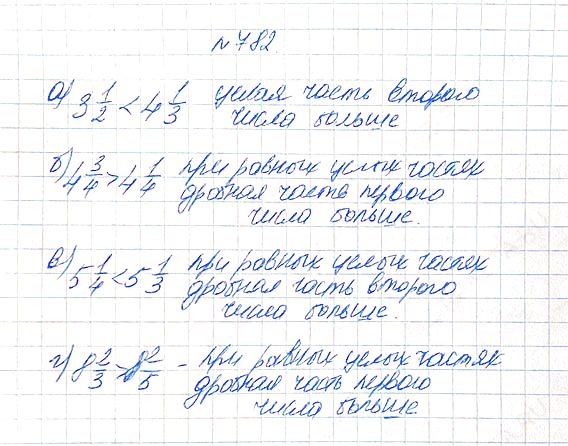 № 782
а) 3 1/2 < 4 1/3 целая часть второго
числа больше
б) 4 3/4 > 4 1/4 при равных целых частях
дробная часть первого
числа больше.
в) 5 1/4 < 5 1/3 при равных целых частях
дробная часть второго
числа больше.
г) 8 2/3 > 8 2/5 - при равных целых частях
дробная часть первого
числа больше.